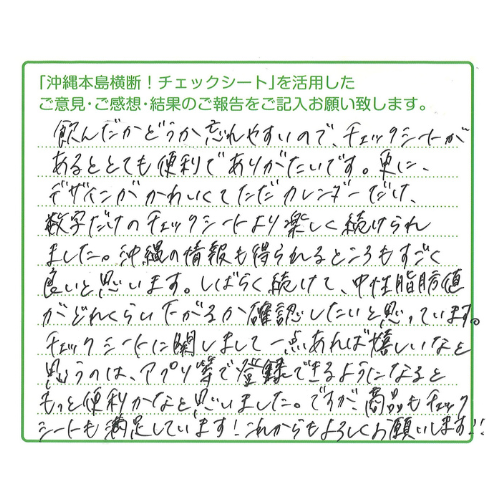 「沖縄本島横断！チェックシート」を活用した
ご意見・ご感想・結果のご報告をご記入お願い致します。
飲んだかどうか忘れやすいので、チェックシートが
あるととても便利でありがたいです。更に、
デザインがかわいくてただカレンダーだけ、
数字だけのチェックシートより楽しく続けられ
ました。沖縄の情報も得られるところもすごく
良いと思います。しばらく続けて、中性脂肪値
がどれくらい下がるか確認したいと思っています。
チェックシートに関しまして一点あれば嬉しいなと
思うのは、アプリ等で登録できるようになると
もっと便利かなと思いました。ですが、商品もチェック
シートも満足しています！これからもよろしくお願いします!!